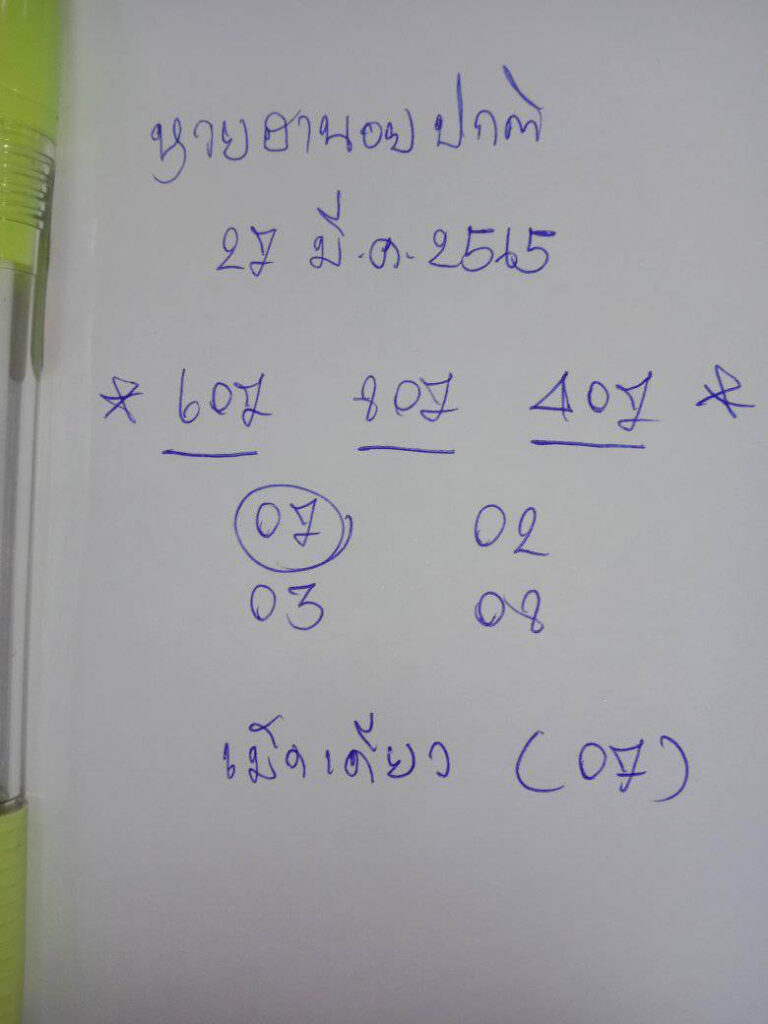 หวยฮานอยปกติ
27 มี.ค. 2565
* 607 807 407 *
07 02
03 08
เม็ดเดียว (07)